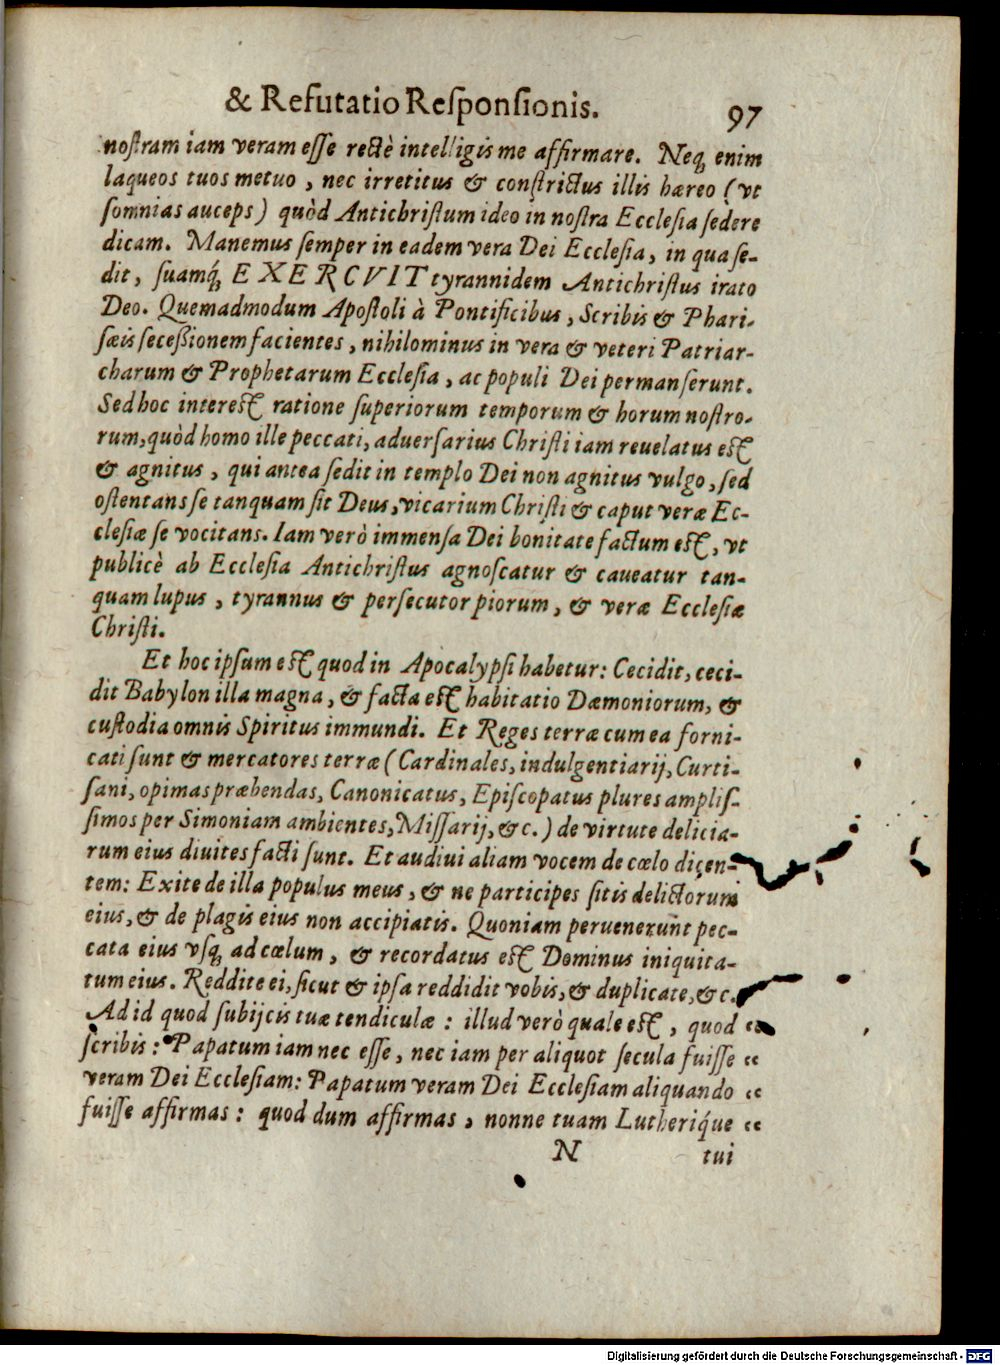 & Refutatio Responsionis.
97
nostram iam veram esse rectè intelligis me affirmare. Neq; enim
laqueos tuos metuo, nec irretitus & constrictus illis hæreo (vt
somnias auceps) quòd Antichristum ideo in nostra Ecclesia sedere
dicam. Manemus semper in eadem vera Dei Ecclesia, in qua se-
dit, suamq́; EXERCVIT tyrannidem Antichristus irato
Deo. Quemadmodum Apostoli à Pontificibus, Scribis & Phari-
sæis secessionem facientes, nihilominus in vera & veteri Patriar-
charum & Prophetarum Ecclesia, ac populi Dei permanserunt.
Sed hoc interest ratione superiorum temporum & horum nostro-
rum, quòd homo ille peccati, aduersarius Christi iam reuelatus est
& agnitus, qui antea sedit in templo Dei non agnitus vulgo, sed
ostentans se tanquam sit Deus, vicarium Christi & caput veræ Ec-
clesiæ se vocitans. Iam verò immensa Dei bonitate factum est, vt
publicè ab Ecclesia Antichristus agnoscatur & caueatur tan-
quam lupus, tyrannus & persecutor piorum, & veræ Ecclesiæ
Christi.
Et hoc ipsum est quod in Apocalypsi habetur: Cecidit, ceci-
dit Babylon illa magna, & facta est habitatio Dæmoniorum, &
custodia omnis Spiritus immundi. Et Reges terræ cum ea forni-
cati sunt & mercatores terræ (Cardinales, indulgentiarij, Curti-
sani, opimas præbendas, Canonicatus, Episcopatus plures amplis-
simos per Simoniam ambientes, Missarij, &c.) de virtute delicia-
rum eius diuites facti sunt. Et audiui aliam vocem de cœlo dicen-
tem: Exite de illa populus meus, & ne participes sitis delictorum
eius, & de plagis eius non accipiatis. Quoniam peruenerunt pec-
cata eius vsq; ad cœlum, & recordatus est Dominus iniquita-
tum eius. Reddite ei, sicut & ipsa reddidit vobis, & duplicate, &c.
Ad id quod subijcis tuæ tendiculæ: illud verò quale est, quod “
scribis: Papatum iam nec esse, nec iam per aliquot secula fuisse “
veram Dei Ecclesiam: Papatum veram Dei Ecclesiam aliquando “
fuisse affirmas: quod dum affirmas, nonne tuam Lutheriq́ue “
N
tui
Digitalisierung gefördert durch die Deutsche Forschungsgemeinschaft - DFG